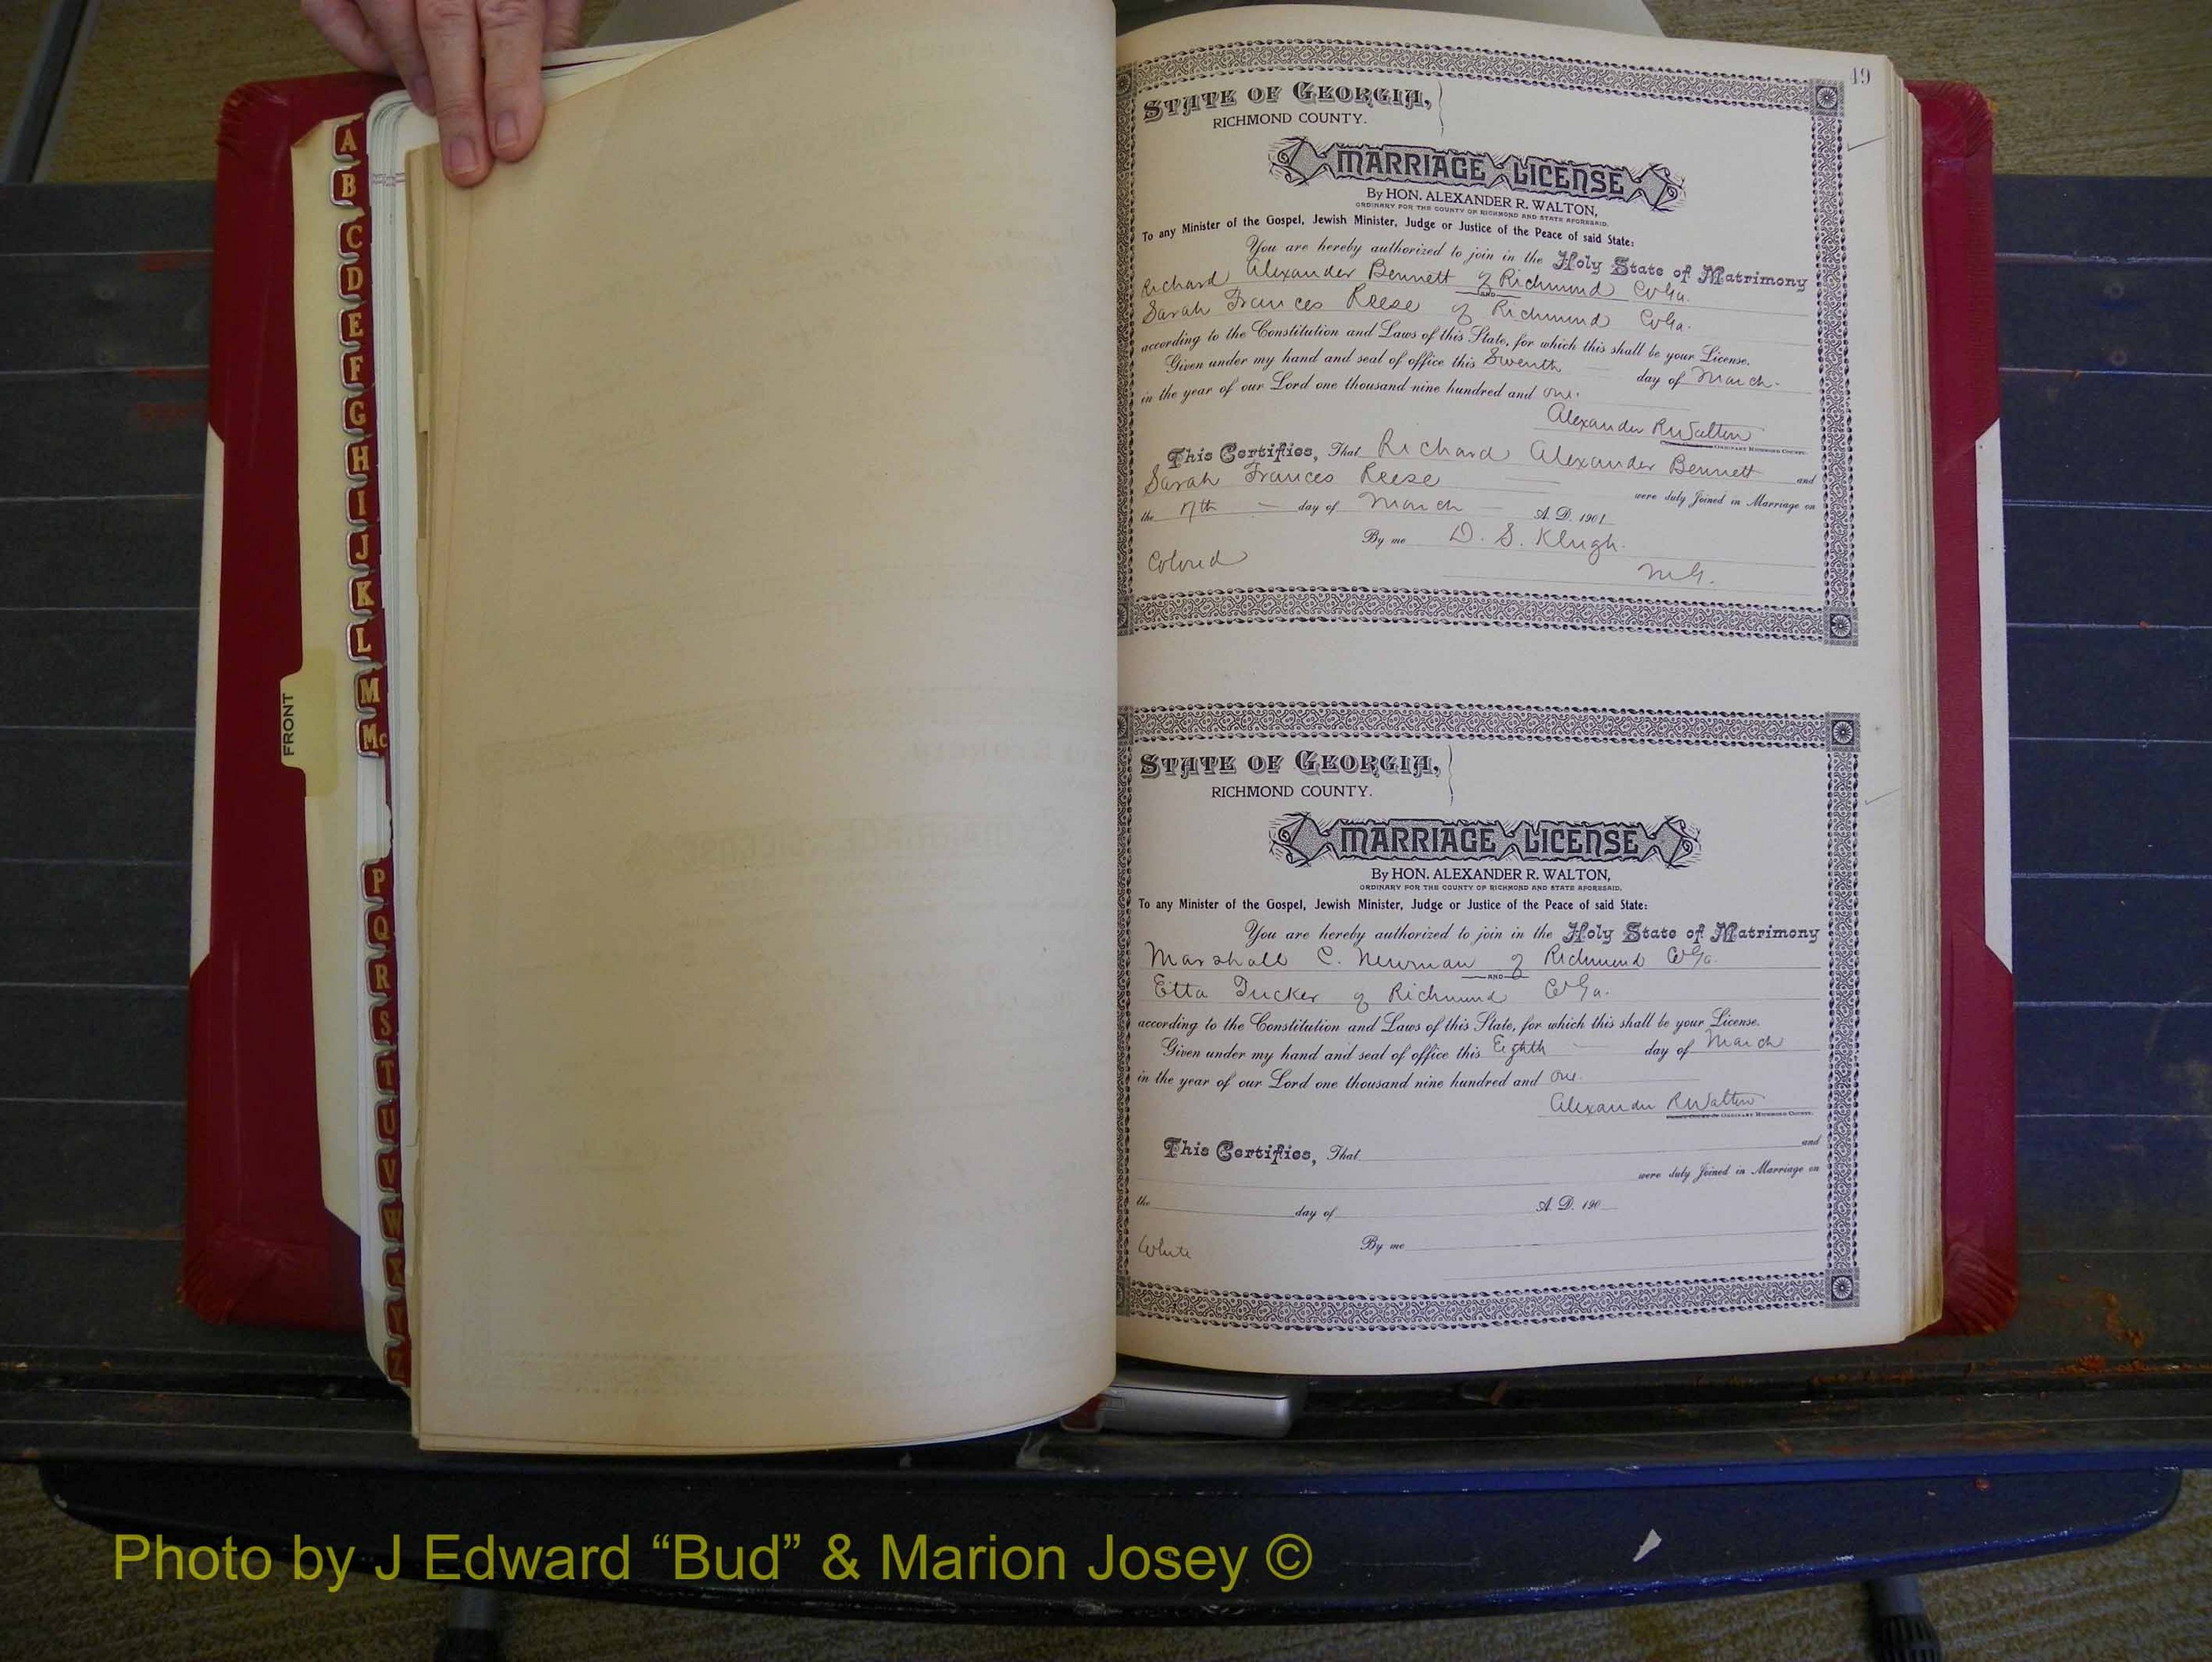 49
STATE OF GEORGIA,
RICHMOND COUNTY.
MARRIAGE LICENSE
By HON. ALEXANDER R. WALTON,
ORDINARY FOR THE COUNTY OF RICHMOND AND STATE AFORESAID.
To any Minister of the Gospel, Jewish Minister, Judge or Justice of the Peace of said State:
You are hereby authorized to join in the Holy State of Matrimony
Richard Alexander Bennett of Richmond Co Ga.
AND
Sarah Frances Reese of Richmond Co Ga.
according to the Constitution and Laws of this State, for which this shall be your License.
Given under my hand and seal of office this Seventh day of March.
in the year of our Lord one thousand nine hundred and one.
Alexander R Walton
ORDINARY RICHMOND COUNTY.
This Certifies, That Richard Alexander Bennett and
Sarah Frances Reese were duly Joined in Marriage on
the 17th day of March A. D. 1901
By me D. S. Klugh.
Colored M G.
STATE OF GEORGIA,
RICHMOND COUNTY.
MARRIAGE LICENSE
By HON. ALEXANDER R. WALTON,
ORDINARY FOR THE COUNTY OF RICHMOND AND STATE AFORESAID.
To any Minister of the Gospel, Jewish Minister, Judge or Justice of the Peace of said State:
You are hereby authorized to join in the Holy State of Matrimony
Marshall C. Newman of Richmond Co Ga.
AND
Etta Tucker of Richmond Co Ga.
according to the Constitution and Laws of this State, for which this shall be your License.
Given under my hand and seal of office this Eighth day of March
in the year of our Lord one thousand nine hundred and one.
Alexander R Walton
ORDINARY RICHMOND COUNTY.
This Certifies, That and
were duly Joined in Marriage on
the day of A. D. 190
White By me
A
B
C
D
E
F
G
H
I
J
K
L
M
Mc
P
Q
R
S
T
U
V
W
X
Y
Z
FRONT
Photo by J Edward “Bud” & Marion Josey ©